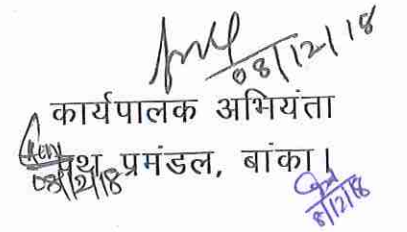 08/12/18
कार्यपालक अभियंता
पथ प्रमंडल, बांका।
08/12/18
8/12/18